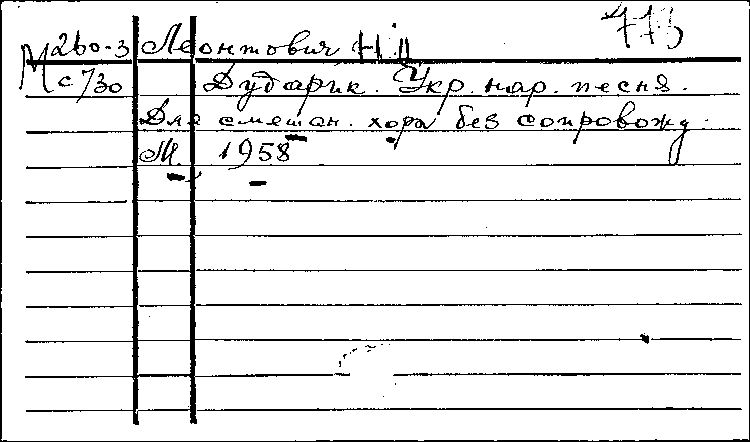 473
М 260-3 Леонтович Н.Д.
с 730 Дударик. Укр. нар. песня.
Для смешан. хора без сопровожд.
М. 1958